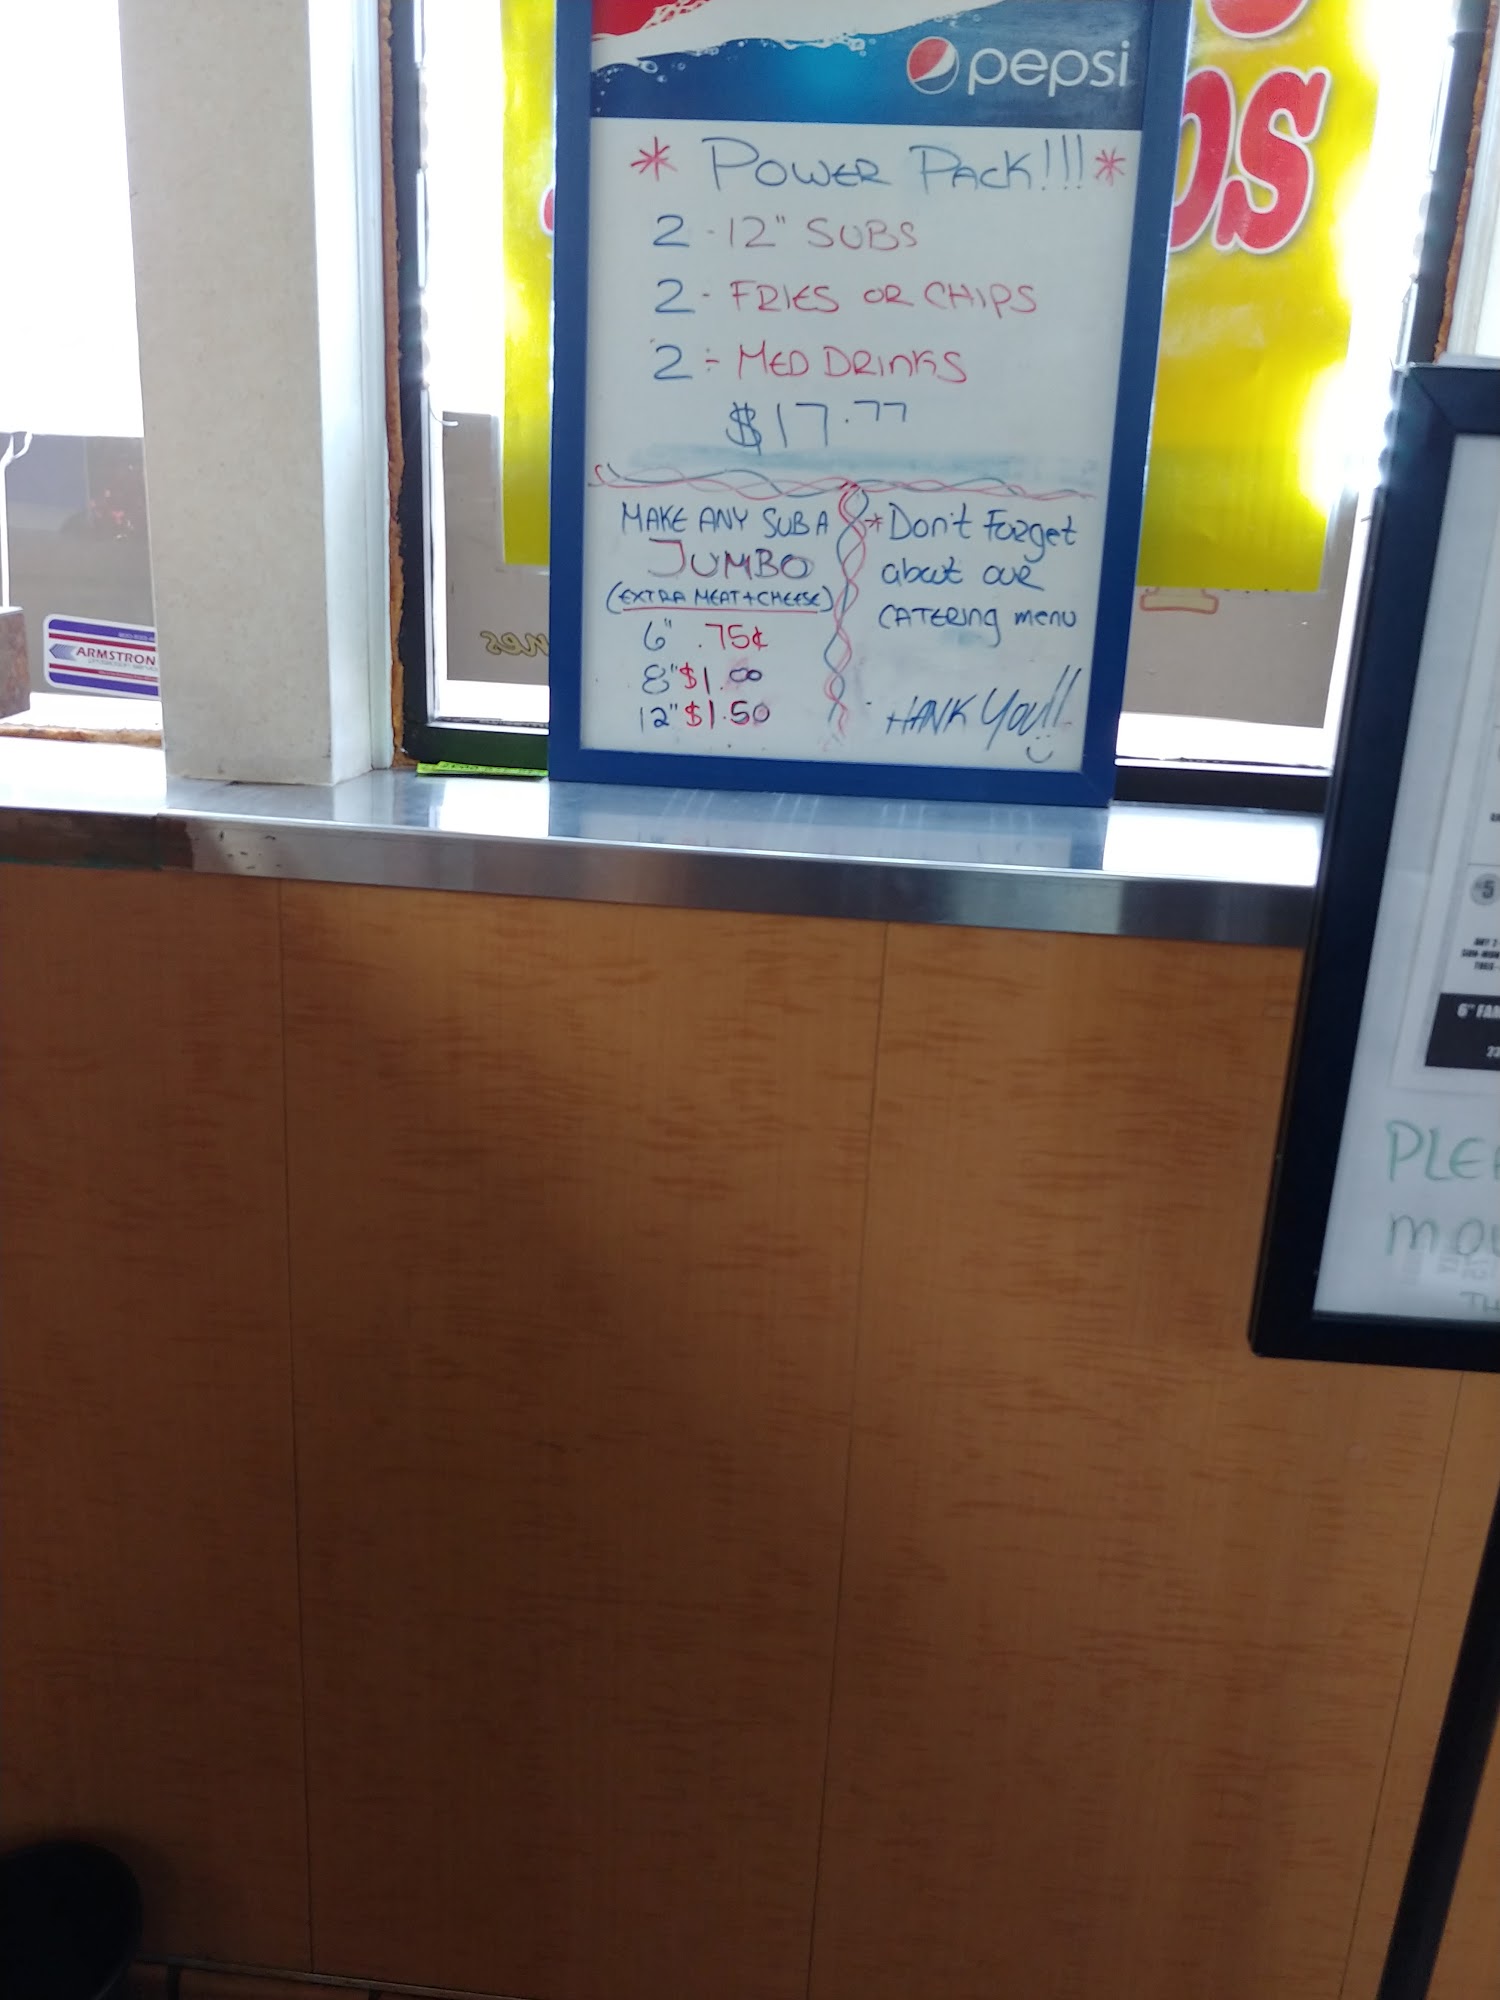 pepsi
* POWER PACK!!! *
2 - 12" SUBS
2 - FRIES OR CHIPS
2 - MED DRINKS
$17.77
MAKE ANY SUB A
JUMBO
(EXTRA MEAT + CHEESE)
6" .75¢
8" $1.00
12" $1.50
* Don't Forget
about our
CATERING menu
HANK YOU!!
ARMSTRON
OS
5
ANY 2
SUN-MON
6" FAM
23
PLEA
MOV
TH